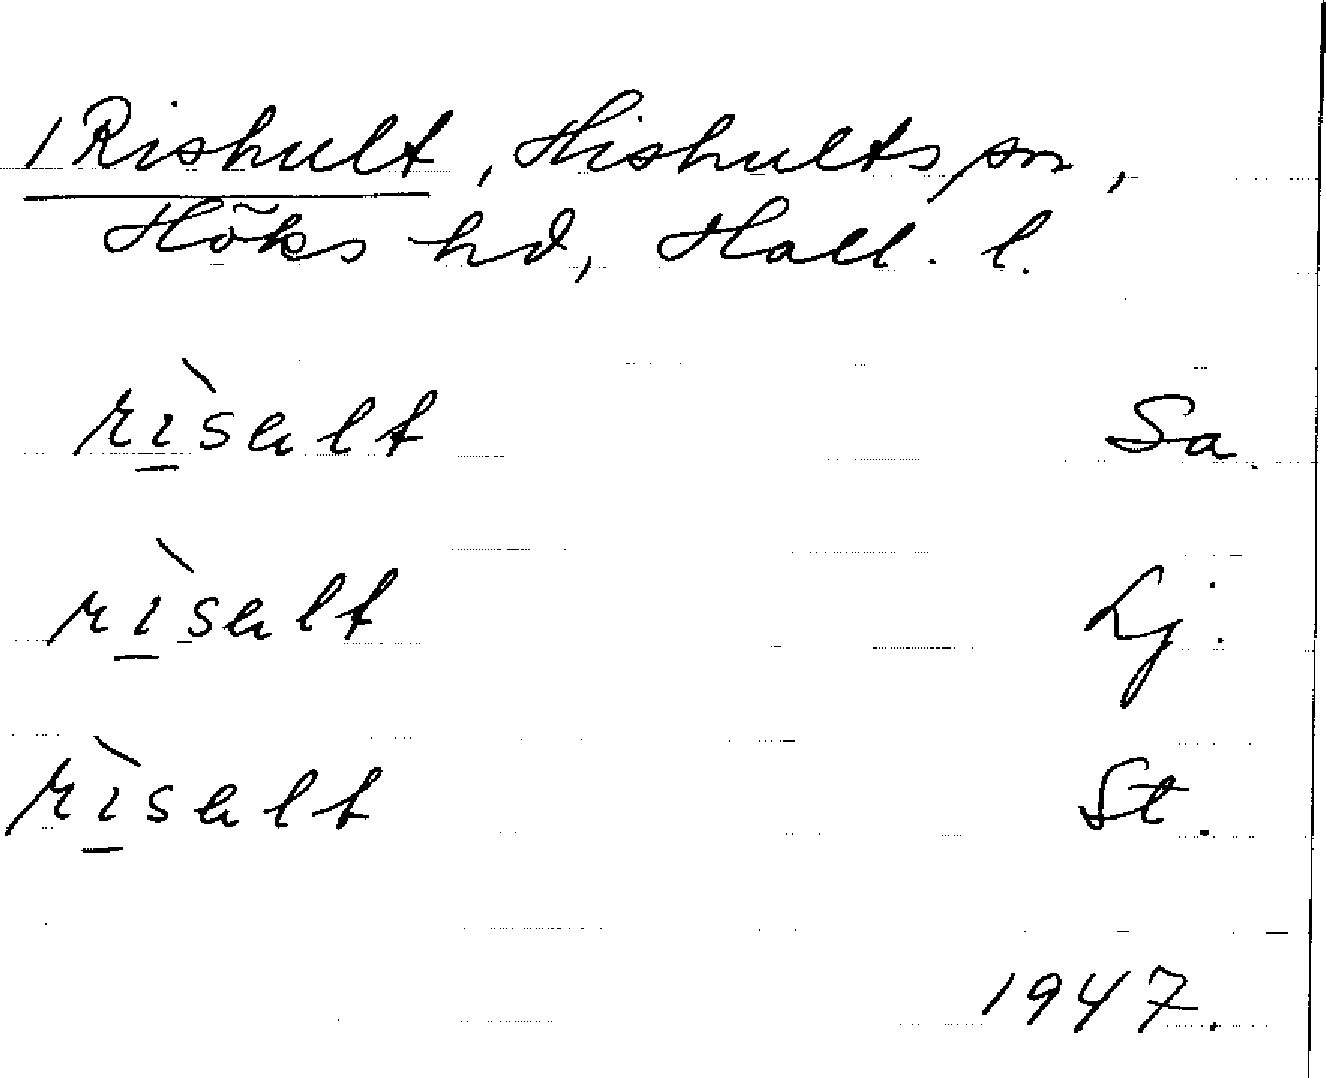 1 Rishult, Hishults sn,
Höks hd, Hall. l.
rìsalt Sa.
rìsalt Lj.
rìsalt St.
1947.